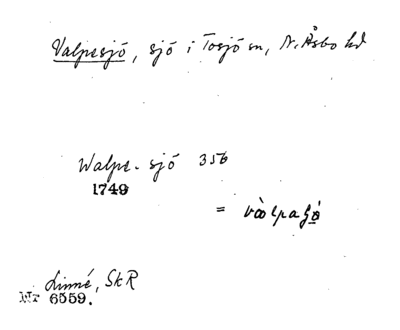 Valpesjö, sjö i Tosjö sn, N. Åsbo hd
Walpe-sjö 356
1749
= 
Linné, SkR
Nr 6559.